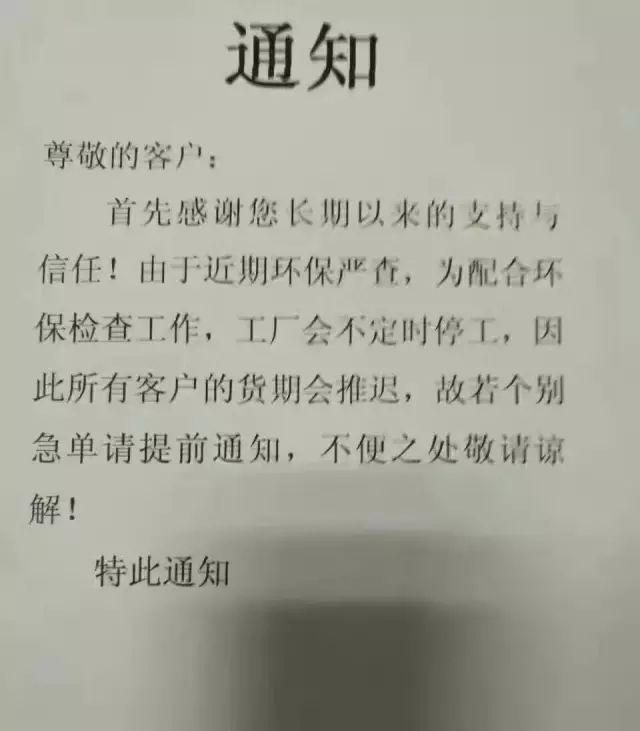 通知
尊敬的客户：
首先感谢您长期以来的支持与
信任！由于近期环保严查，为配合环
保检查工作，工厂会不定时停工，因
此所有客户的货期会推迟，故若个别
急单请提前通知，不便之处敬请谅
解！
特此通知